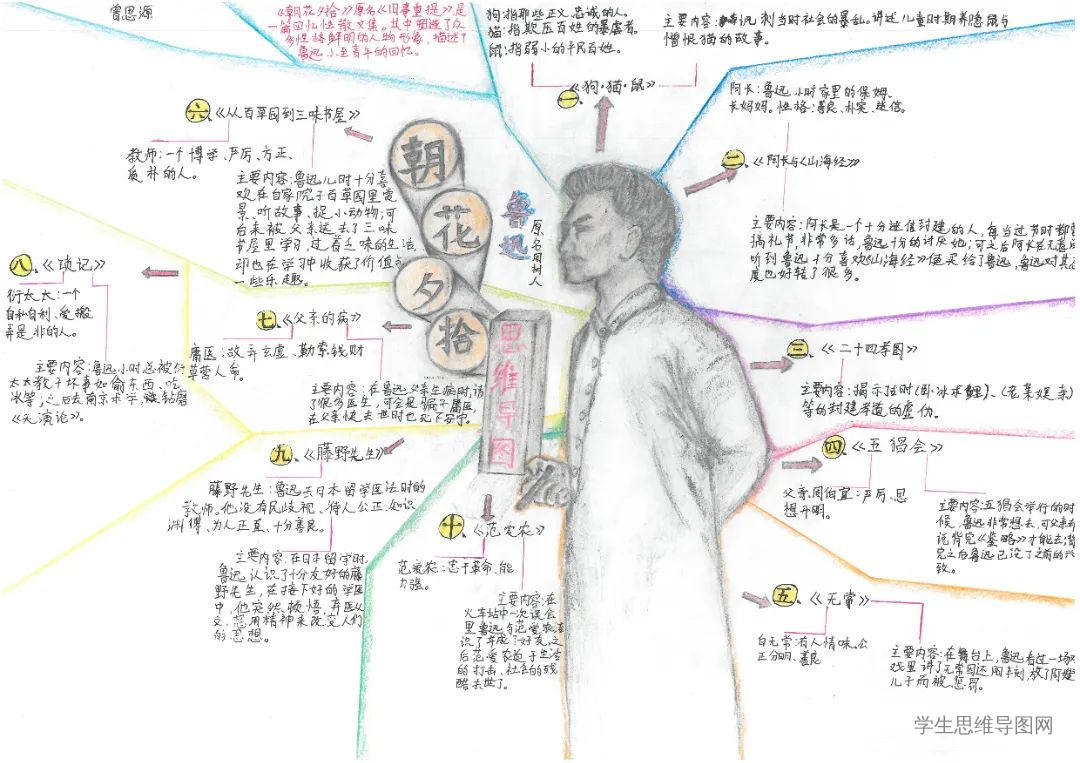 曾思源
《朝花夕拾》原名《旧事重提》是
一篇回忆性散文集。其中塑造了众
多性格鲜明的人物形象，描述了
鲁迅小至青年的回忆。
狗：指那些正义、忠诚的人。
猫：指欺压百姓的暴虐者。
鼠：指弱小的平民百姓。
一、《狗·猫·鼠》
主要内容：讽刺当时社会的暴乱。讲述儿童时期养隐鼠与
憎恨猫的故事。
阿长：鲁迅小时家里的保姆、
长妈妈。性格：善良、朴实、迷信。
二、《阿长与《山海经》
主要内容：阿长是一个十分迷信封建的人，每当过节时都
搞礼节，非常多话，鲁迅十分的讨厌她；可之后阿长在
听到鲁迅十分喜欢《山海经》便买给了鲁迅，鲁迅对其
度也好转了很多。
三、《二十四孝图》
主要内容：揭示旧时(卧冰求鲤)、(老莱娱亲)
等的封建孝道的虚伪。
四、《五猖会》
父亲周伯宜：严厉、思
想开明。
主要内容：五猖会举行的时
候，鲁迅非常想去，可父亲
说背完《鉴略》才能去；
完之后鲁迅已没了之前的兴
致。
五、《无常》
白无常：有人情味、公
正分明、善良
主要内容：在舞台上，鲁迅看过一场
戏里讲了无常因还阳半刻，放了阿嫂
儿子而被惩罚。
六、《从百草园到三味书屋》
教师：一个博学、严厉、方正、
质朴的人。
主要内容：鲁迅儿时十分喜
欢在自家院子百草园里觅
景、听故事、捉小动物；可
后来被父亲送去了三味
书屋里学习，过着乏味的生活，
却也在学习中收获了价值与
一些乐趣。
七、《父亲的病》
庸医：故弄玄虚、勒索钱财
草菅人命。
主要内容：在鲁迅父亲生病时，请
了很多医生，可全是骗子庸医，
在父亲快去世时也不下安宁。
八、《琐记》
衍太太：一个
自私自利、爱搬
弄是非的人。
主要内容：鲁迅小时总被衍
太太教干坏事如偷东西、吃
冰等；之后去南京求学，钻磨
《天演论》。
九、《藤野先生》
藤野先生：鲁迅去日本留学医法时的
教师。他没有民歧视、待人公正、知识
渊博、为人正直、十分善良。
主要内容：在日本留学时，
鲁迅认识了十分友好的藤
野先生，在接下好的学医
中，他突然顿悟，弃医从
文，想用精神来改变人们
的思想。
十、《范爱农》
范爱农：忠于革命、能
力强。
主要内容：在
火车站中一次误会
里鲁迅与范爱农
识了并成了好友，之
后范爱农迫于生活
的打击、社会的残
酷去世了。
朝
花
夕
拾
鲁迅
原名周树人
思维导图
学生思维导图网